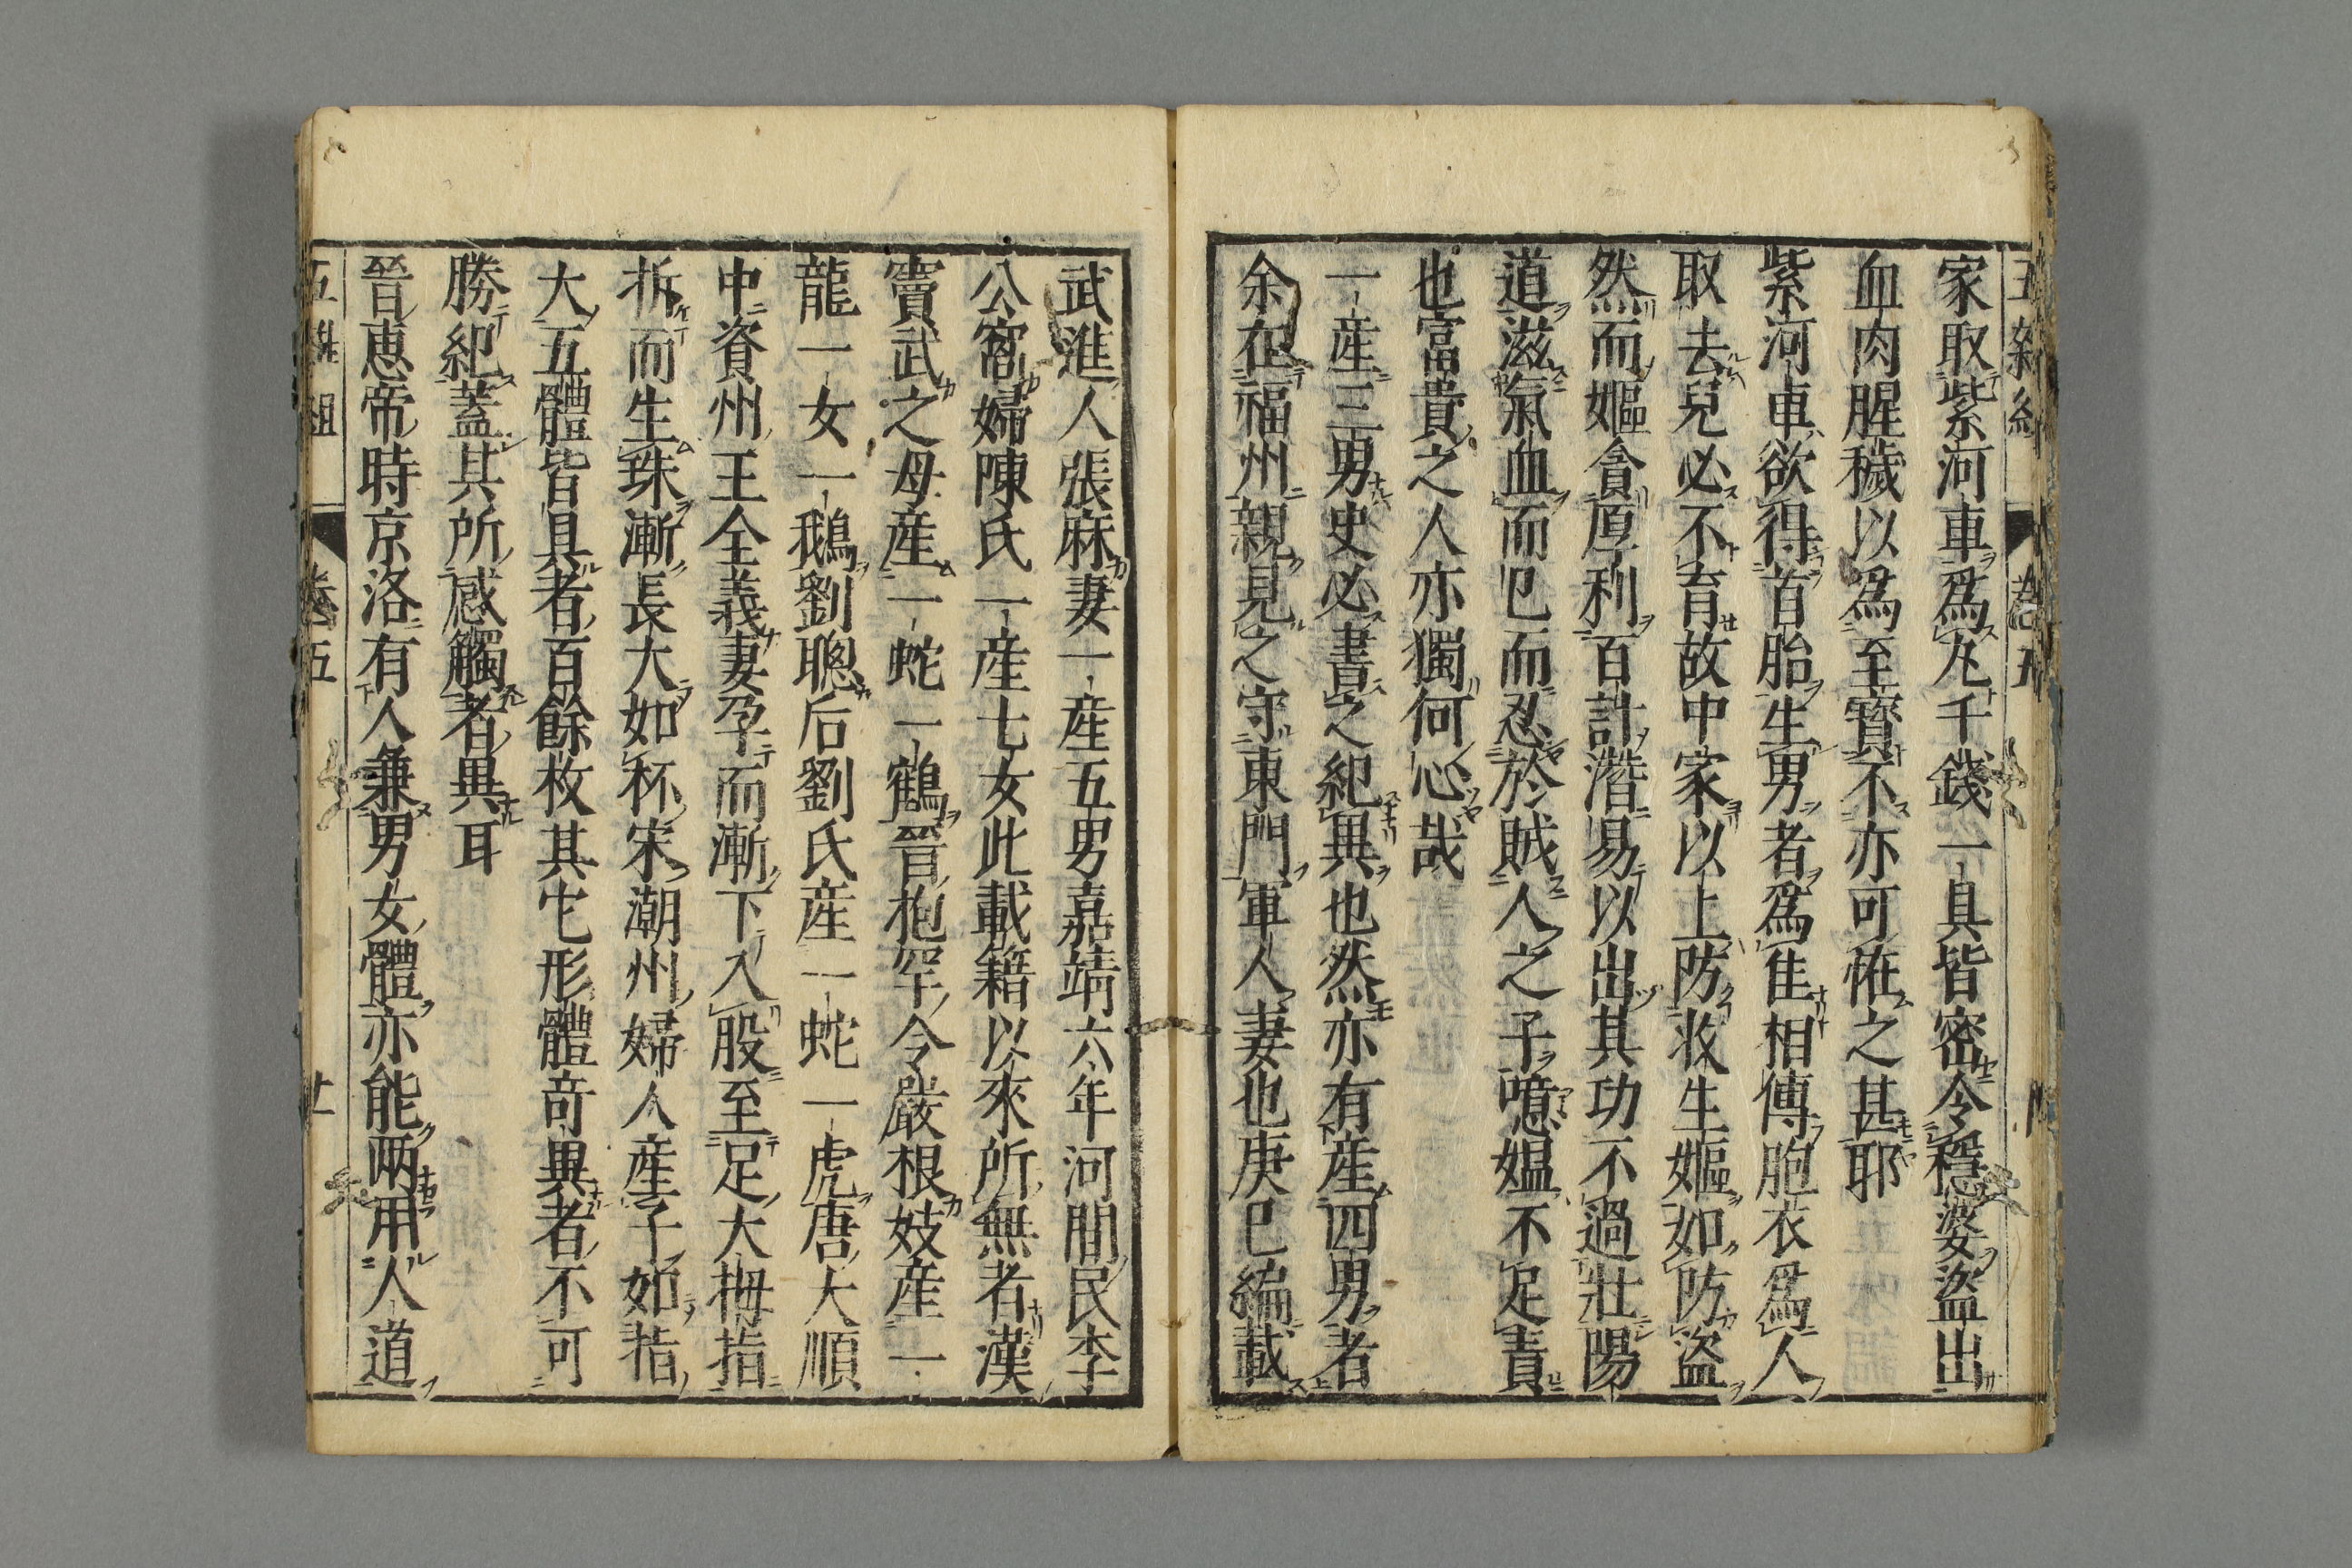 家取紫河車爲丸千錢一具皆密令穩婆盜出
血肉腥穢以爲至寶不亦可恠之甚耶
紫河車欲得首胎生男者爲佳相傳胞衣爲人
取去兒必不育故中家以上防收生嫗如防盜
然而嫗貪厚利百計潛易以出其功不過壯陽
道滋氣血而已而忍於賊人之子噫媼不足責
也富貴之人亦獨何心哉
一産三男史必書之紀異也然亦有産四男者
余在福州親見之守東門軍人妻也庚巳編載
武進人張麻妻一産五男嘉靖六年河間民李
公窩婦陳氏一産七女此載籍以來所無者漢
竇武之母産一蛇一鶴晉抱罕令嚴根妓産一
龍一女一鵝劉聰后劉氏産一蛇一虎唐大順
中資州王全義妻孕而漸下入股至足大拇指
拆而生珠漸長大如杯宋潮州婦人産子如指
大五體皆具者百餘枚其它形體竒異者不可
勝紀蓋其所感觸者異耳
晉惠帝時京洛有人兼男女體亦能兩用人道
五雜組
卷五
廿